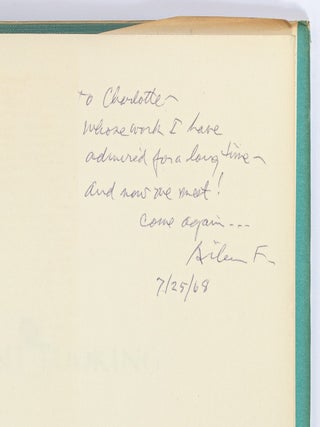 to Charlotte~
whose work I have
admired for a long time~
and now we meet!
come again...
Aileen F.
7/25/68